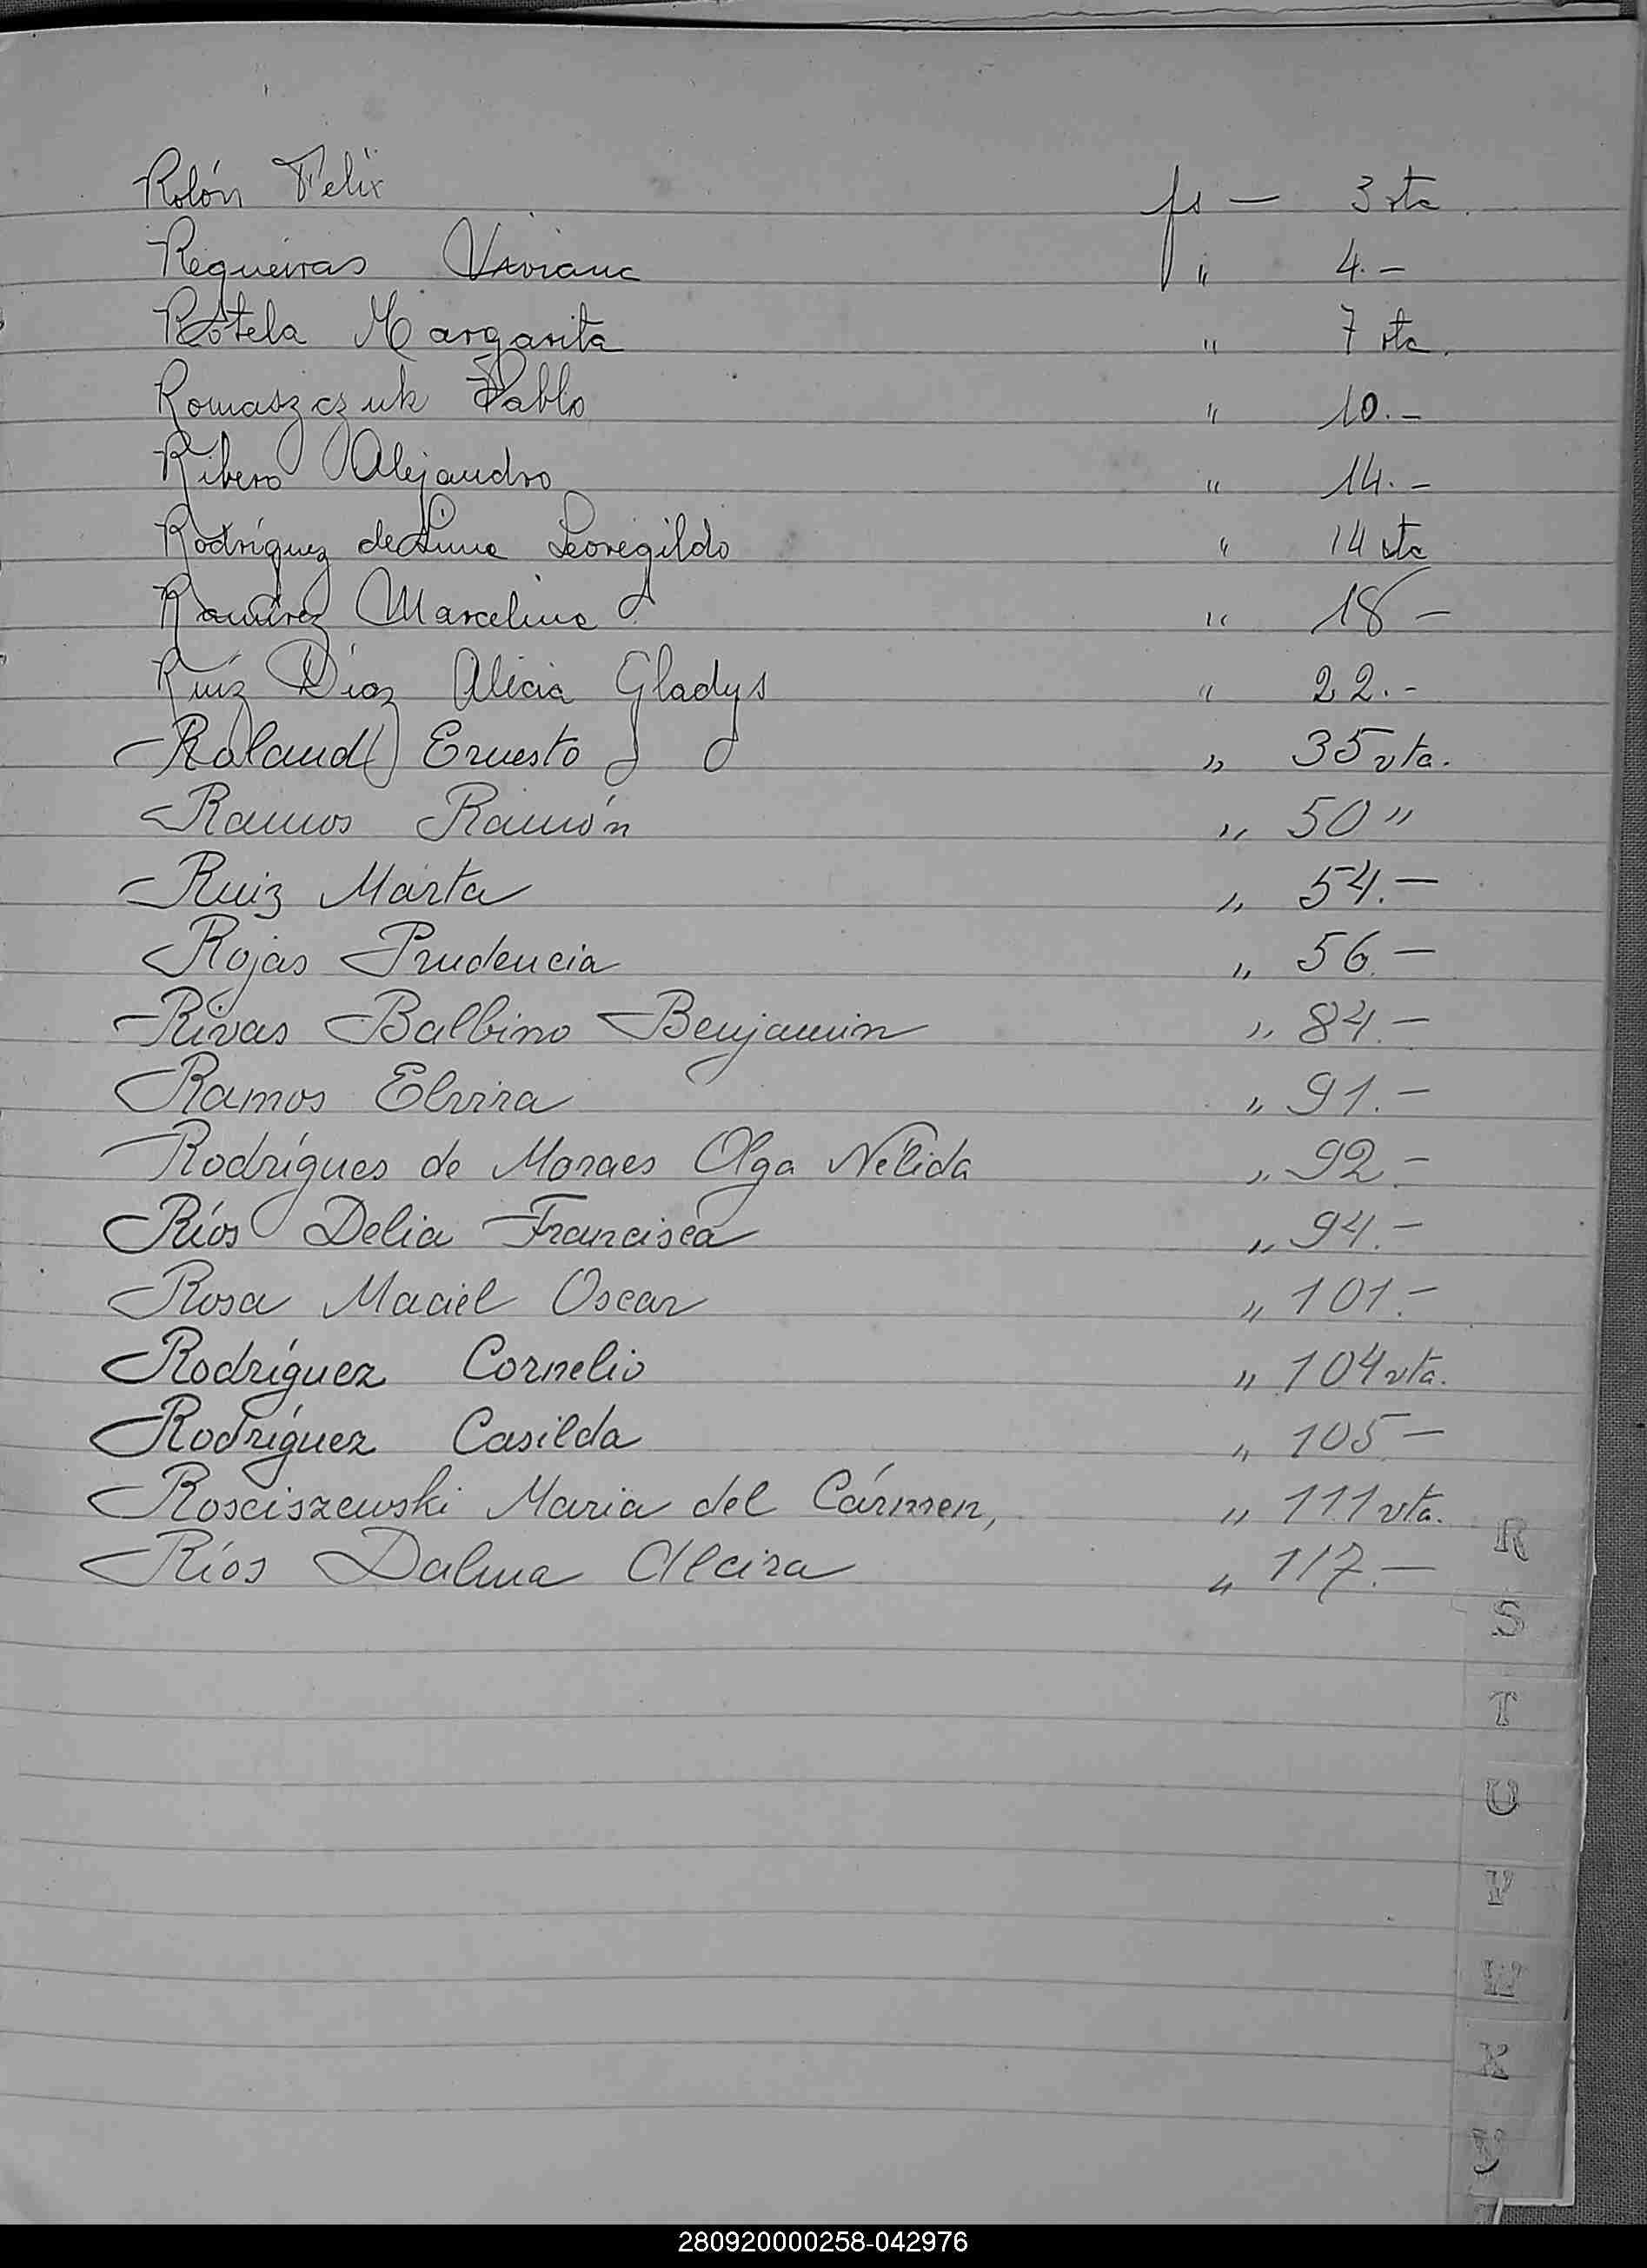 Rolón Felix fs — 3 vta.
Requeiras Viviana " 4.-
Rotela Margarita " 7 vta.
Romaszczuk Pablo " 10.-
Ribero Alejandro " 14.-
Rodríguez de Lima Leovegildo " 14 vta
Ramírez Marcelina " 18 -
Ruíz Díaz Alicia Gladys " 22.-
Roland Ernesto " 35 vta.
Ramos Ramón " 50 "
Ruiz Marta " 54.-
Rojas Prudencia " 56.-
Rivas Balbino Benjamin " 84.-
Ramos Elvira " 91.-
Rodrígues de Moraes Olga Nélida " 92.-
Ríos Delia Francisca " 94.-
Rosa Maciel Oscar " 101.-
Rodríguez Cornelio " 104 vta.
Rodríguez Casilda " 105 -
Rosciszewski Maria del Cármen, " 111 vta.
Ríos Dalma Alcira " 117.-
R
S
T
U
V
W
X
Y
280920000258-042976